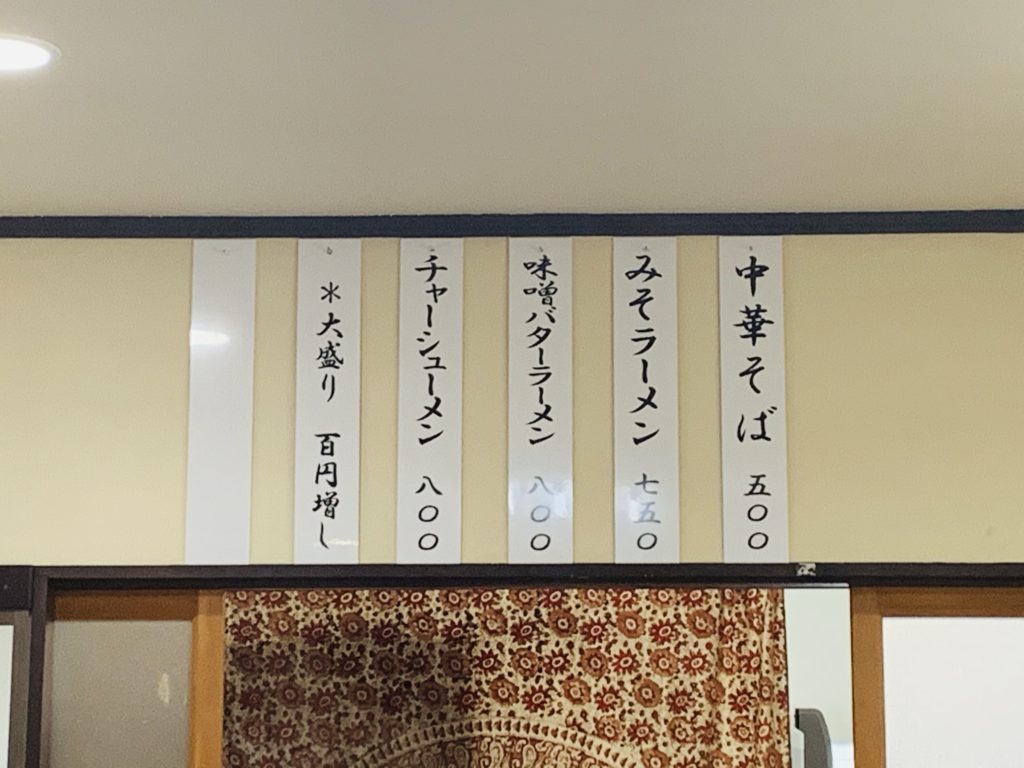 中華そば 五〇〇
みそラーメン 七五〇
味噌バターラーメン 八〇〇
チャーシューメン 八〇〇
＊大盛り 百円増し